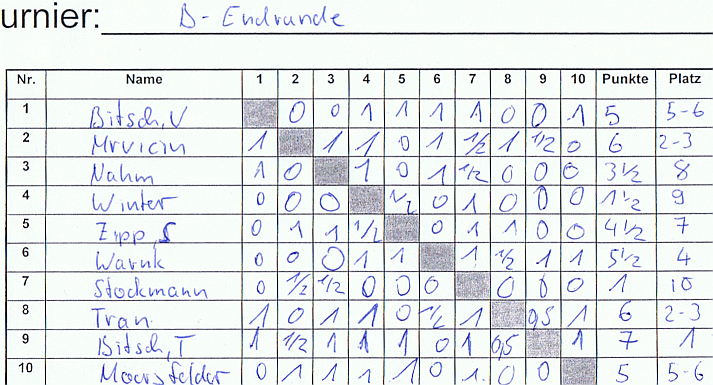 urnier: B-Endrunde
Nr. Name 1 2 3 4 5 6 7 8 9 10 Punkte Platz
1 Bitsch, V 0 0 1 1 1 1 0 0 1 5 5-6
2 Mrvicin 1 1 1 0 1 1/2 1 1/2 0 6 2-3
3 Nahm 1 0 1 0 1 1/2 0 0 0 3 1/2 8
4 Winter 0 0 0 1/2 0 1 0 0 0 1 1/2 9
5 Zipp, S 0 1 1 1/2 0 1 1 0 0 4 1/2 7
6 Warnk 0 0 0 1 1 1 1/2 1 1 5 1/2 4
7 Stockmann 0 1/2 1/2 0 0 0 0 0 0 1 10
8 Tran 1 0 1 1 0 1/2 1 0,5 1 6 2-3
9 Bitsch, T 1 1/2 1 1 1 0 1 0,5 1 7 1
10 Moersfelder 0 1 1 1 1 0 1. 0 0 5 5-6